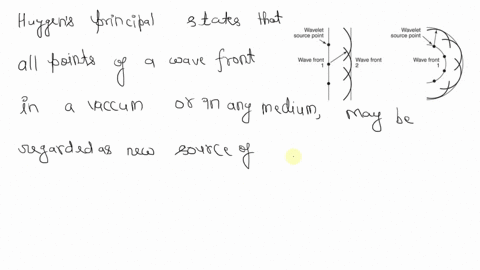 Huygen's principal states that
all points of a wave front
in a vaccum or in any medium, may be
regarded as new source of
Wavelet
source point
Wave front
1
Wave front
2
Wavelet
source point
Wave front
1